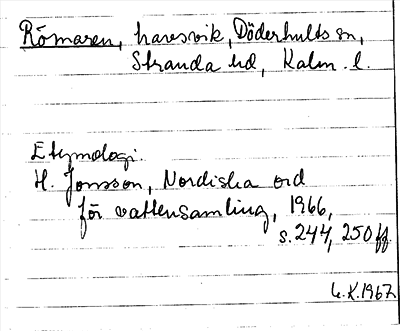 Römaren, havsvik, Döderhults sn,
Stranda hd, Kalm. l.
Etymologi.
H. Jonsson, Nordiska ord
för vattensamling, 1966,
s. 244, 250 ff
1967